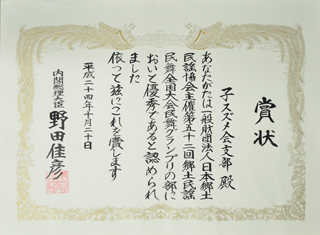 賞状
子スズメ会支部 殿
あなたがたは一般財団法人日本郷土
民謡協会主催第五十二回郷土民謡
民舞全国大会民舞グランプリの部に
おいて優秀であると認められ
ました
依って茲にこれを賞します
平成二十四年十月二十日
内閣総理大臣 野田佳彦